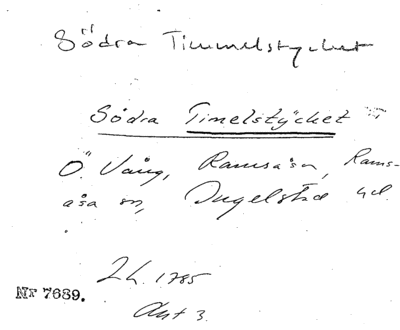 Södra Timmelstycket
Södra Timelstÿcket
Ö. Vång, Ramsåsa, Rams-
åsa sn, Ingelstad hd.
LH. 1785
Akt 3.
Nr 7689.